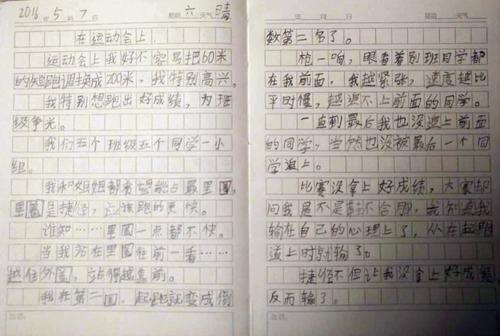 2016年5月7日 星期六 天气晴
在运动会上
运动会上我好不容易把60米
的短跑调换成200米，我特别高兴。
我特别想跑出好成绩，为班
级争光。
我们五个班级五个同学一小
组。
我和姐姐都希望能占最里圈，
里圈是捷径，应该跑的更快。
谁知……里圈一点都不快。
当我站在里圈往前一看……
越往外圈，站得越靠前。
我在第二圈，起跑就变成倒
年 月 日 星期 天气
数第二名了。
枪一响，眼看着别班同学都
在我前面，我越紧张，速度越比
平时慢，越追不上前面的同学。
一直到最后我也没追上前面
的同学，当然也没被最后一个同
学追上。
比赛没拿上好成绩，大家都
问我是不是鞋不合脚，我知道我
输在自己的心理上了，从在起跑
道上时就输了。
捷径不但让我没拿上好成绩
反而输了。